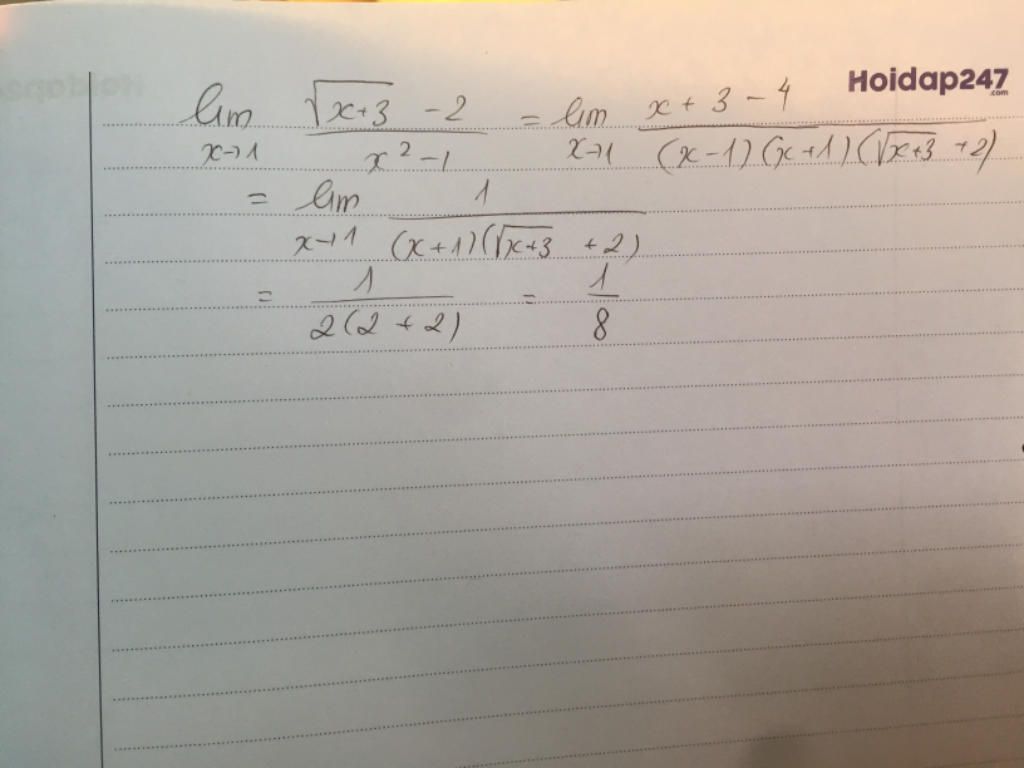 Hoidap247
.com
lim x→1 (√(x+3) - 2)/(x² - 1) = lim x→1 (x + 3 - 4)/((x-1)(x+1)(√(x+3) + 2))
= lim x→1 1/((x+1)(√(x+3) + 2))
= 1/(2(2 + 2)) = 1/8